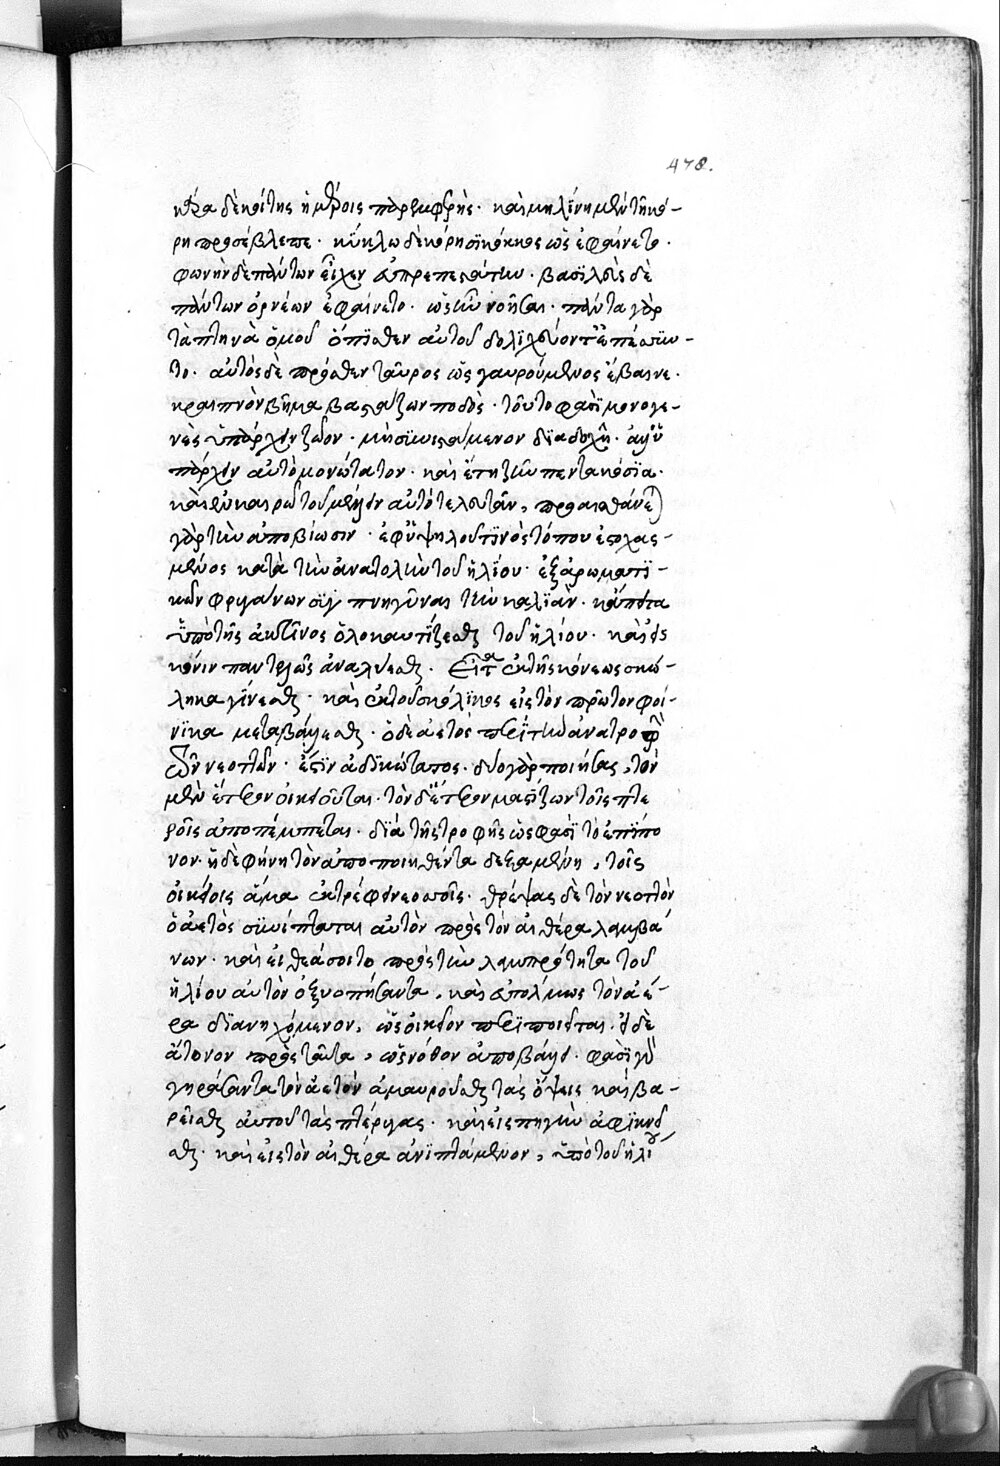 478.
κέρα δὲ κοίτης ἡμέροις παρεμφερής· καὶ μηλίνη μὲν τῇ κό-
ρη προσέβλεπε· κύκλω δὲ κόρησι κόκκος ὡς ἐφαίνετο·
φωνὴν δὲ πάντων εἶχεν εὐπρεπεστάτην· βασιλεὺς δὲ
πάντων ὀρνέων ἐφαίνετο· ὡς ἦν νοῆσαι· πάντα γὰρ
τὰ πτηνὰ ὁμοῦ ὄπισθεν αὐτοῦ δολιχεύοντα ἐπέσσυν-
το· αὐτὸς δὲ πρόσθεν ταῦρος ὡς γαυρούμενος ἔβαινε·
κραιπνὸν βῆμα βαστάζων ποδὸς· τοῦτο φασὶ μονογε-
νὲς ὑπάρχειν ζῶον· μὴ σκιμπτάμενον διαδοχῆ· ἀλλ' ὑ
πάρχειν αὐτὸ μονώτατον· καὶ ἔτη ζῆν πεντακόσια·
καὶ εὐκαίρω τοῦ μέλλειν αὐτὸ τελευτᾶν, προαισθάνεται
γὰρ τὴν ἀποβίωσιν· ἐφ' ὑψηλοῦ τινὸς τόπου ἐσχασ-
μένος κατὰ τὴν ἀνατολὴν τοῦ ἡλίου· ἐξ ἀρωματι-
κῶν φρυγάνων συμπηγνῦναι τὴν καλιὰν· κάπειτα
ὑπὸ τῆς ἀκτῖνος ὁλοκαυτίζεσθαι τοῦ ἡλίου· καὶ εἰς
κόνιν παντελῶς ἀναλύεσθαι· εἶτα ἐκ τῆς κόνεως σκώ-
ληκα γίνεσθαι· καὶ ἐκ τοῦ σκώληκος εἰς τὸν πρῶτον φοί-
νικα μεταβάλλεσθαι· ὁ δὲ ἀετὸς περὶ τὴν ἀνατροφὴν
τῶν νεοττῶν· ἐστὶν ἀδικώτατος· δύο γὰρ ποιήσας, τὸν
μὲν ἕτερον οἰκειοῦται· τὸν δ' ἕτερον μαστίζων τοῖς πτε
ροῖς ἀποπέμπεται· διὰ τῆς τροφῆς ὡς φασὶ τὸ ἐπίπο
νον· ἡ δὲ φήνη τὸν ἀποποιηθέντα δεξαμένη, τοῖς
οἰκείοις ἅμα ἐκτρέφει νεοσσοῖς· θρέψας δὲ τὸν νεοττὸν
ὁ ἀετὸς συνίπταται αὐτὸν πρὸς τὸν αἰθέρα λαμβά
νων· καὶ εἰ θεάσοιτο πρὸς τὴν λαμπρότητα τοῦ
ἡλίου αὐτὸν ὀξυωπήσαντα, καὶ εὐτόλμως τὸν ἀέ-
ρα διανηχόμενον, ὡς οἰκεῖον περιποιεῖται· εἰ δὲ
ἄτονον πρὸς ταῦτα, ὡς νόθον ἀποβάλλει· φασὶ γὰρ
γηράσαντα τὸν ἀετὸν ἀμαυροῦσθαι τὰς ὄψεις καὶ βα-
ρεῖσθαι αὐτοῦ τὰς πτέρυγας· καὶ εἰς πηγὴν ἀφικνεῖ
σθαι· καὶ εἰς τὸν αἰθέρα ἀνιπτάμενον, ὑπὸ τοῦ ἡλίου